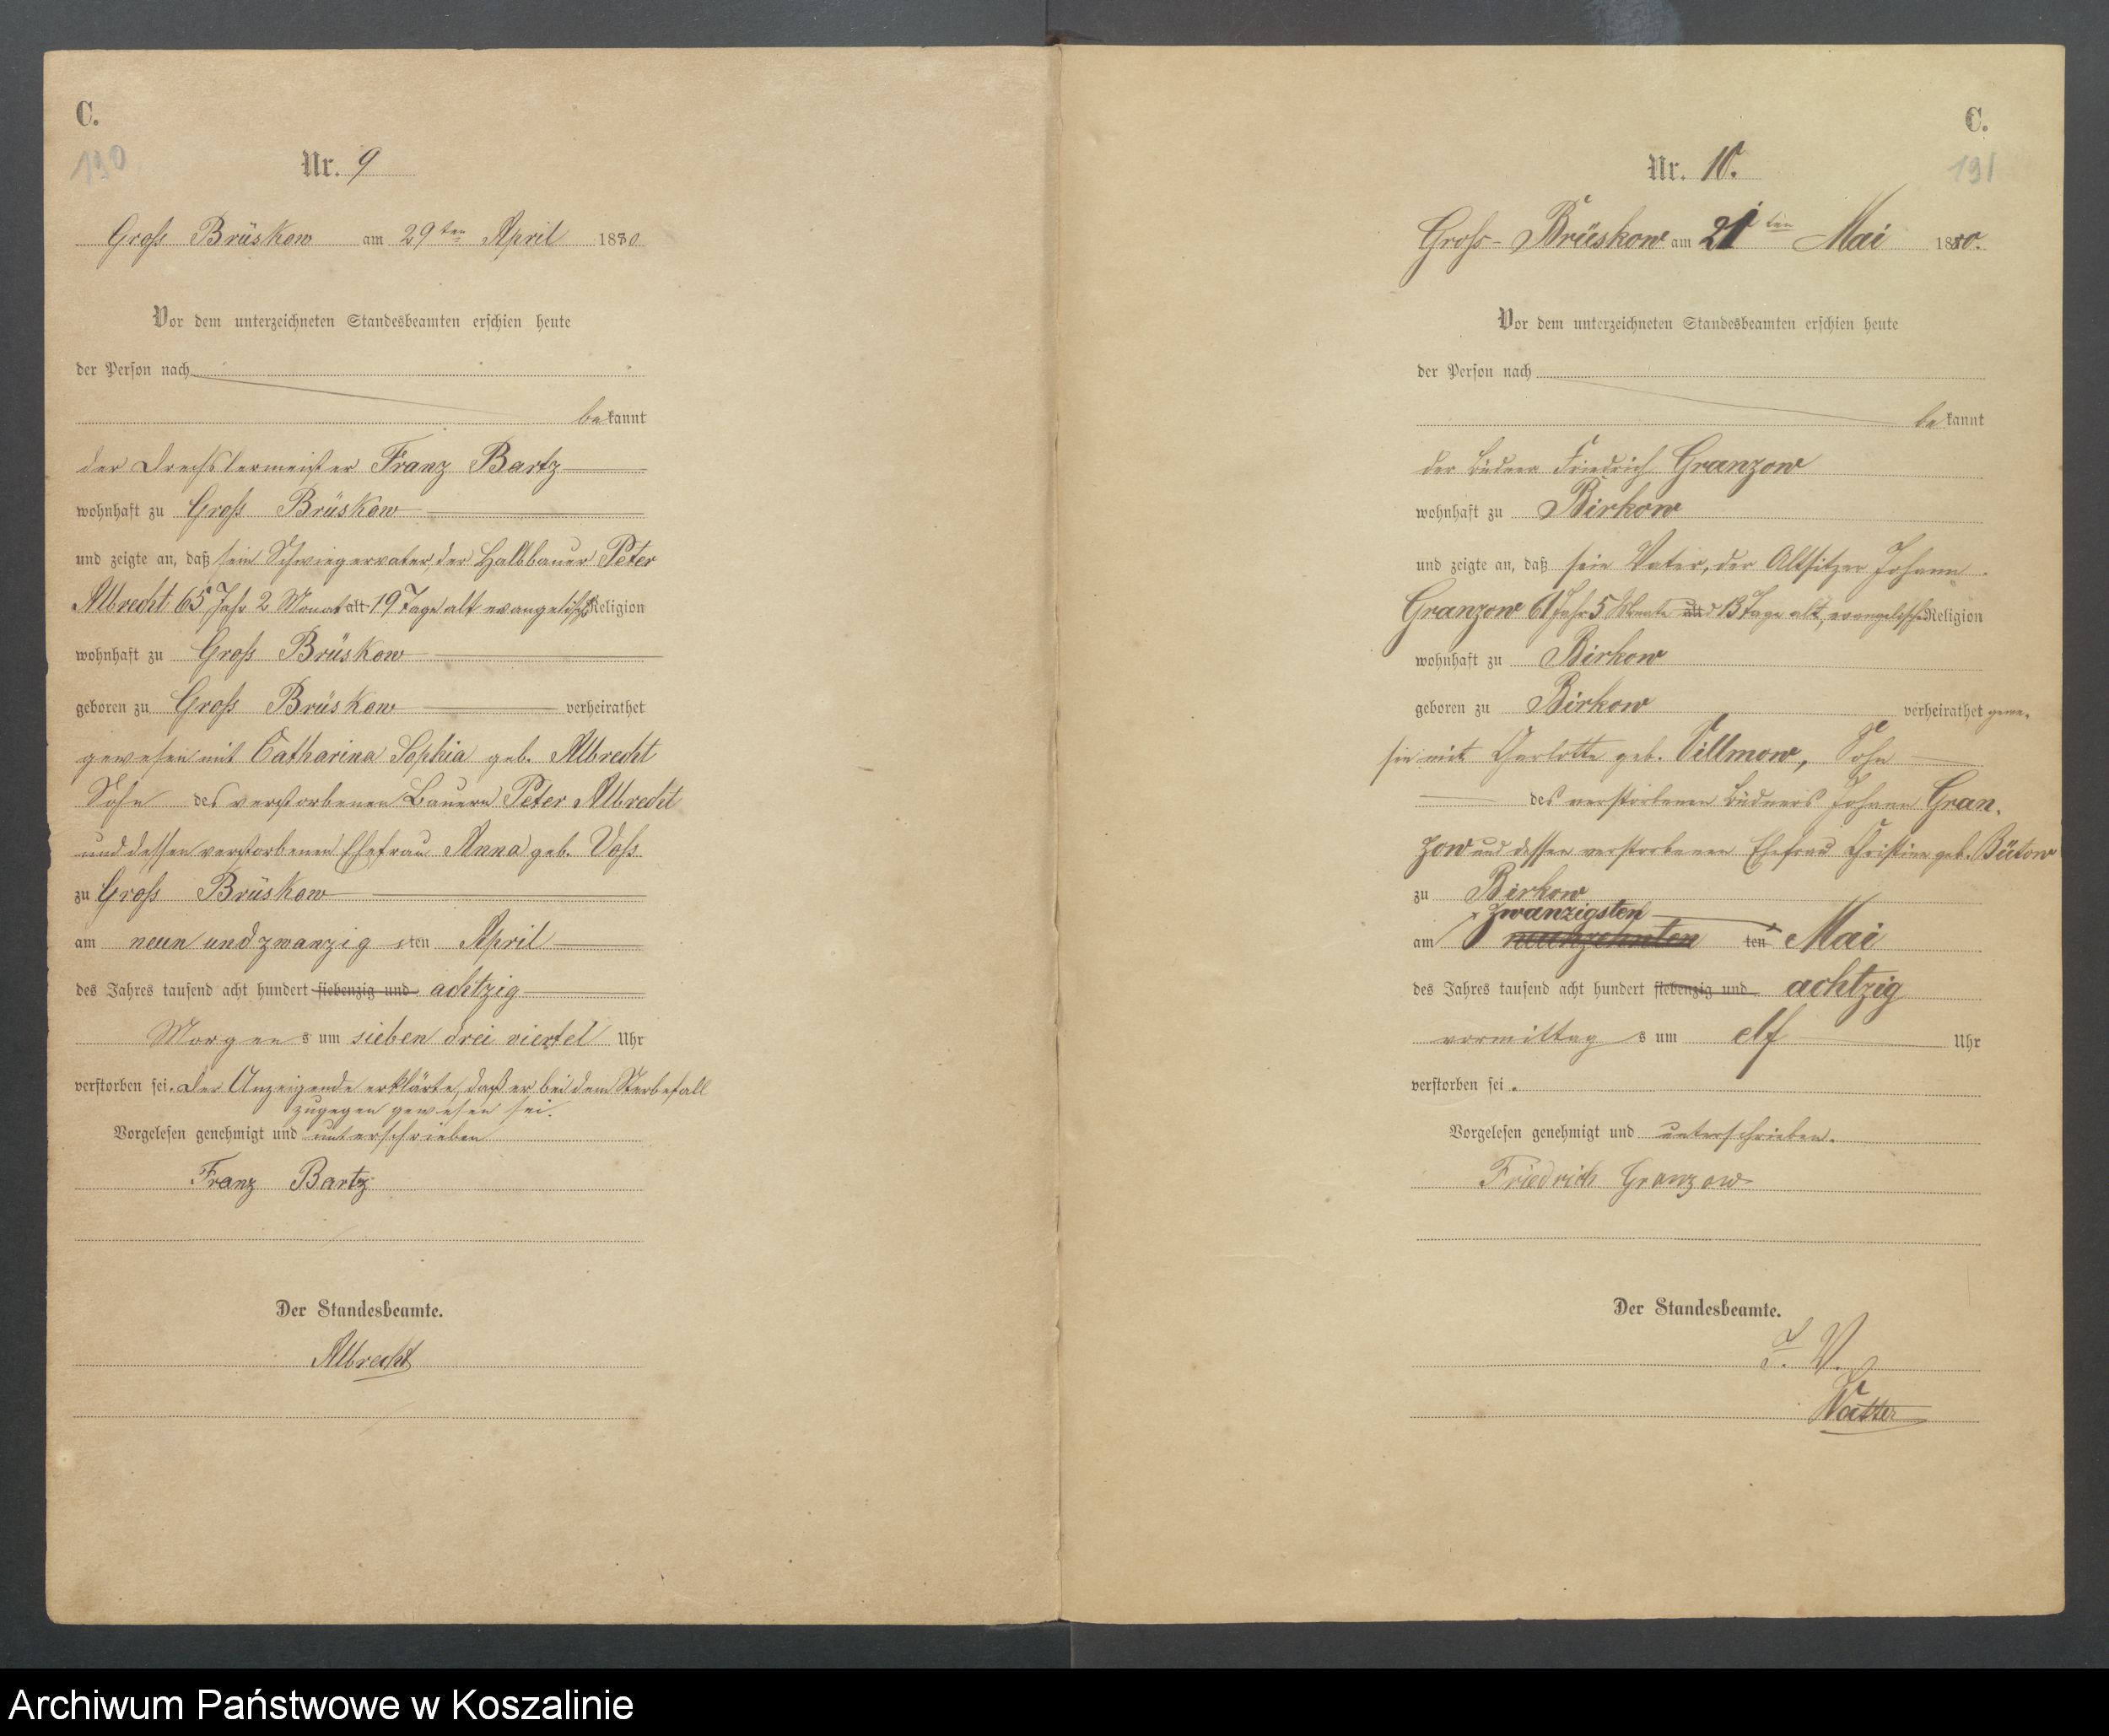 C.
190
Nr. 9
Gross Brüskow am 29ten April 1880
Vor dem unterzeichneten Standesbeamten erschien heute
der Person nach
bekannt
der Drechslermeister Franz Bartz
wohnhaft zu Gross Brüskow
und zeigte an, daß sein Schwiegervater der Halbbauer Peter
Albrecht 65 Jahr 2 Monat alt 19 Tage alt evangelischer Religion
wohnhaft zu Gross Brüskow
geboren zu Gross Brüskow verheirathet
gewesen mit Catharina Sophia geb. Albrecht
Sohn des verstorbenen Bauern Peter Albrecht
und dessen verstorbenen Ehefrau Anna geb. Voss
zu Gross Brüskow
am neun und zwanzigsten April
des Jahres tausend acht hundert siebenzig und achtzig
Morgens um sieben drei viertel Uhr
verstorben sei. Der Anzeigende erklärte, daß er bei dem Sterbefall
zugegen gewesen sei.
Vorgelesen genehmigt und unterschrieben
Franz Bartz
Der Standesbeamte.
Albrecht
C.
191
Nr. 10.
Gross-Brüskow am 21ten Mai 1880.
Vor dem unterzeichneten Standesbeamten erschien heute
der Person nach
bekannt
der Büdner Friedrich Granzow
wohnhaft zu Birkow
und zeigte an, daß sein Vater, der Altsitzer Johann
Granzow 61 Jahr 5 Monate alt 13 Tage alt, evangelischer Religion
wohnhaft zu Birkow
geboren zu Birkow verheirathet gewe-
sen mit Charlotte geb. Villmow, Sohn
des verstorbenen Büdners Johann Gran-
zow und dessen verstorbenen Ehefrau Christine geb. Bütow
zu Birkow
zwanzigsten
am neunzehnten ten Mai
des Jahres tausend acht hundert siebenzig und achtzig
vormittags um elf Uhr
verstorben sei.
Vorgelesen genehmigt und unterschrieben.
Friedrich Granzow
Der Standesbeamte.
J. V.
Archiwum Państwowe w Koszalinie